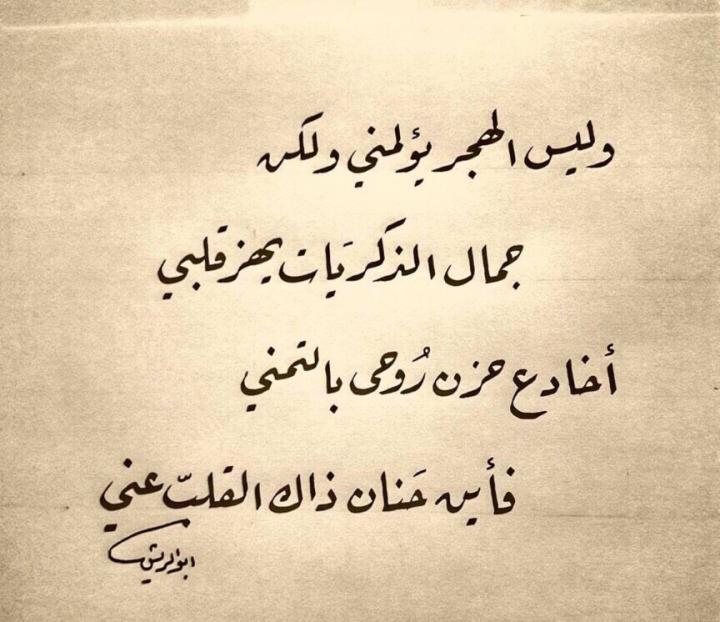 وليس الهجر يؤلمني ولكن
جمال الذكريَات يهز قلبي
أخادع حزن رُوحى بالتمني
فأين حَنان ذاك القلبّ عني
ابوالريش